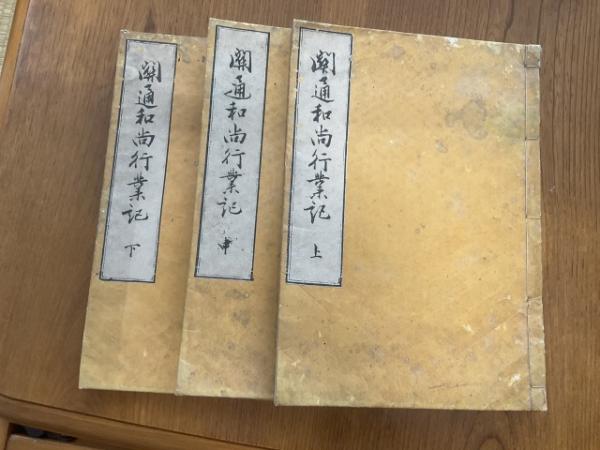 關通和尚行業記 上
關通和尚行業記 中
關通和尚行業記 下